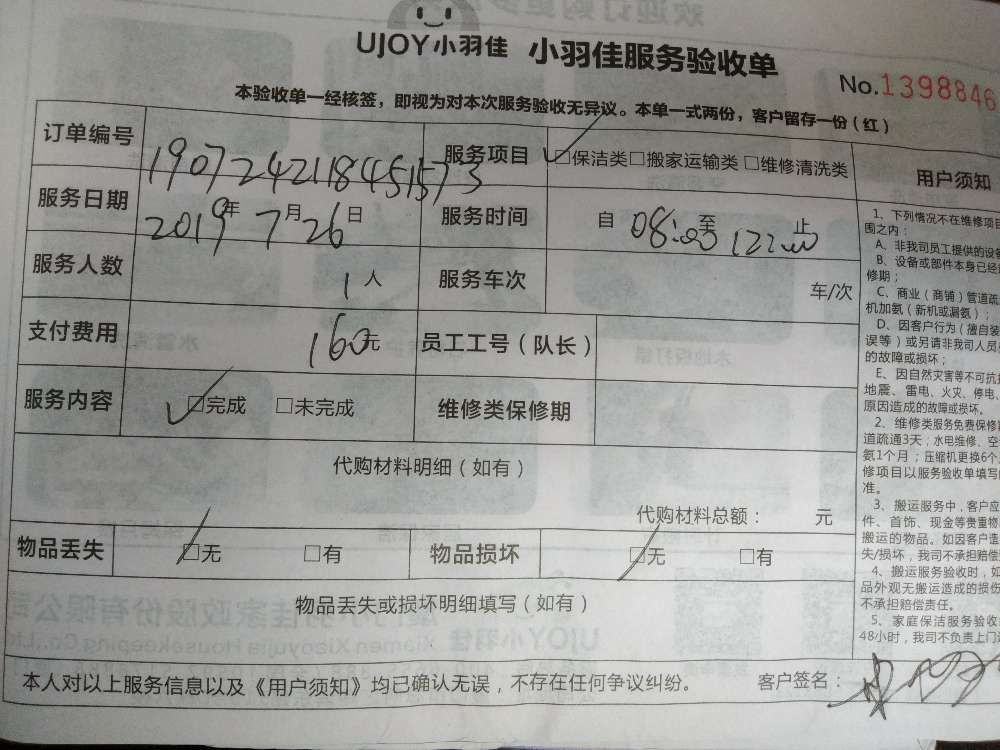 UJOY小羽佳 小羽佳服务验收单
No.1398846
本验收单一经核签，即视为对本次服务验收无异议。本单一式两份，客户留存一份（红）
订单编号 190724211845 服务项目 □保洁类□搬家运输类□维修清洗类
服务日期 2019年7月26日 服务时间 自 08:00 至 12:00 止
服务人数 1人 服务车次 车/次
支付费用 160元 员工工号（队长）
服务内容 □完成 □未完成 维修类保修期
代购材料明细（如有）
代购材料总额： 元
物品丢失 □无 □有 物品损坏 □无 □有
物品丢失或损坏明细填写（如有）
本人对以上服务信息以及《用户须知》均已确认无误，不存在任何争议纠纷。 客户签名：
用户须知
1、下列情况不在维修项目
围之内：
A、非我司员工提供的设备
B、设备或部件本身已经
修期；
C、商业（商铺）管道疏
机加氨（新机或漏氨）；
D、因客户行为（擅自装
误等）或另请非我司人员
的故障或损坏；
E、因自然灾害等不可抗
地震、雷电、火灾、停电、
原因造成的故障或损坏。
2、维修类服务免费保修
道疏通3天；水电维修、空
氨1个月；压缩机更换6个
修项目以服务验收单填写
准。
3、搬运服务中，客户应
件、首饰、现金等贵重物
搬运的物品。如因客户造
失/损坏，我司不承担赔偿
4、搬运服务验收时，如
品外观无搬运造成的损伤
不承担赔偿责任。
5、家庭保洁服务验收
48小时，我司不负责上门